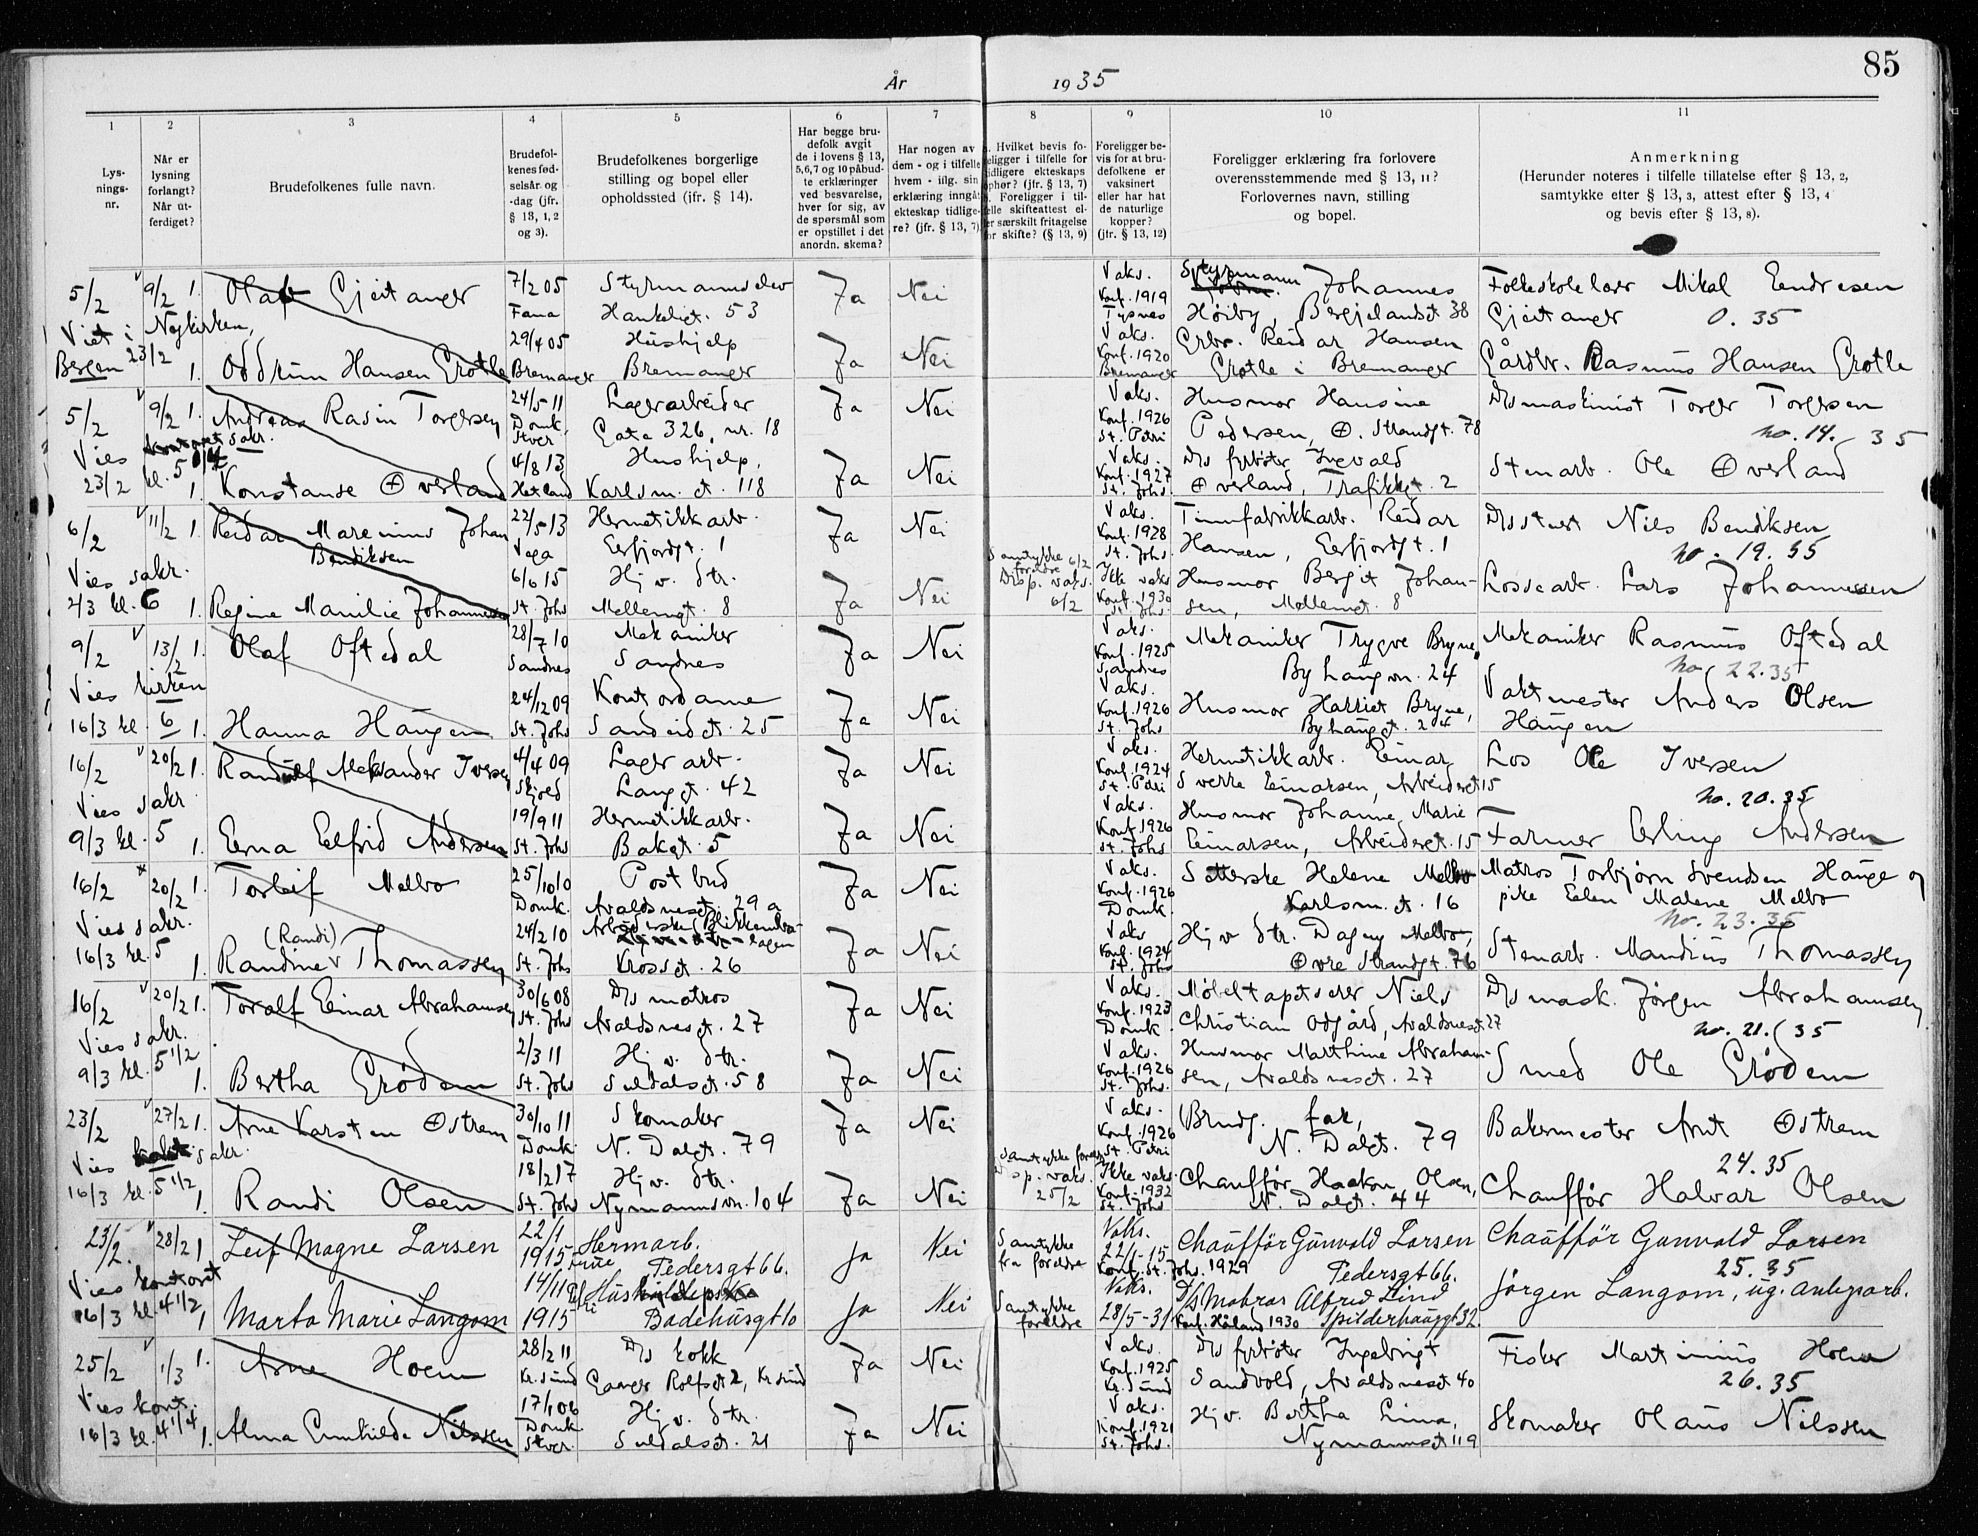 85
År 1935
1 2 3 4 5 6 7 8 9 10 11
Lys-
nings-
nr.
Når er
lysning
forlangt?
Når ut-
ferdiget?
Brudefolkenes fulle navn.
Brudefol-
kenes fød-
selsår og
-dag (jfr.
§ 13, 1, 2
og 3).
Brudefolkenes borgerlige
stilling og bopel eller
opholdssted (ifr. § 14).
Har begge bru-
defolk avgit
de i lovens § 13,
5,6,7 og 10 påbud-
te erklæringer
ved besvarelse,
hver for sig, av
de spørsmål som
er opstillet i det
anordn. skema?
Har nogen av
dem - og i tilfelle
hvem - iflg. sin
erklæring inngå
ekteskap tidlige-
re? (jfr. § 13, 7)
Hvilket bevis fo-
eligger i tilfelle for
idligere ekteskaps
phør? (jfr. § 13, 7)
Foreligger i til-
felle skifteattest el-
er særskilt fritagelse
or skifte? (§ 13, 9)
Foreligger be-
vis for at bru-
defolkene er
vaksinert
eller har hat
de naturlige
kopper?
(jfr. § 13, 12)
Foreligger erklæring fra forlovere
overensstemmende med § 13, 11?
Forlovernes navn, stilling
og bopel.
Anmerkning
(Herunder noteres i tilfelle tillatelse efter § 13, 2,
samtykke efter § 13, 3, attest efter § 13, 4
og bevis efter § 13, 8).
5/2 9/2 1. Olaf Gjeitanger 7/2 05 Fana Styrmannselev Haukeligt. 53 Ja Nei Vaks. Konf. 1919 Tysnes Styrmann Johannes Høiby, Bergjelandsgt 38 Folkeskolelærer Mikal Endresen Gjeitanger 0. 35
Viet i Nykirken, Bergen 23/2
1. Oddrun Hansen Grotle 29/4 05 Bremanger Hushjelp Bremanger Ja Nei Vaks. Konf. 1920 Bremanger Grbr. Reidar Hansen Grotle i Bremanger Gårdbr. Rasmus Hansen Grotle
5/2 9/2 1. Andreas Rasin Torgersen 24/5 11 Domk. Stvgr Lagerarbeider Gate 326, nr. 18 Ja Nei Vaks. Konf. 1926 St. Petri Husmor Hansine Pedersen, Ø. Strandgt. 78 D/s maskinist Torger Torgersen no. 14. 35
Vies sakr. 23/2 kl. 5 1/4
1. Konstanse Øverland 4/8 13 Hetland Hushjelp, Karlsm. gt. 118 Ja Nei Vaks. Konf. 1927 St. Johs. D/s fyrbøter Ingvald Øverland, Trafikkgt. 2 Stenarb. Ole Øverland
6/2 11/2 1. Reidar Marenius Johan Bendiksen 22/5 13 Vega Hermetikkarb. Eerfjordgt. 1 Ja Nei Vaks. Konf. 1928 St. Johs. Tinnfabrikkarb. Reidar Hansen, Eerfjordgt. 1 D/s stuert Nils Bendiksen no. 19. 35
Vies sakr. 2/3 kl. 6
1. Regine Manilie Johannessen 6/6 15 St. Johs Hj v. dtr. Mellemgt. 8 Ja Nei Samtykke foreldre 6/2 Disp. vaks. 6/2 Ikke vaks Konf. 1930 St. Johs. Husmor Bergit Johansen, Mellemgt. 8 Lossearb. Lars Johannessen
9/2 13/2 1. Olaf Oftedal 28/7 10 Sandnes Mekaniker Sandnes Ja Nei Vaks. Konf. 1925 Sandnes Mekaniker Trygve Bryne, Byhaugvn. 24 Mekaniker Rasmus Oftedal no. 22. 35
Vies kirken 16/3 kl. 6
1. Hanna Haugen 24/12 09 St. Johs Kontordame Sandeidgt. 25 Ja Nei Vaks. Konf. 1926 St. Johs Husmor Harriet Bryne, Byhauggt. 24 Vaktmester Anders Olsen Haugen
16/2 20/2 1. Randulf Aleksander Iversen 4/4 09 Skjold Lagerarb. Langgt. 42 Ja Nei Vaks. Konf. 1924 St. Petri Hermetikkarb. Einar Sverre Einarsen, Arbeidergt 15 Los Ole Iversen no. 20. 35
Vies sakr 9/3 kl. 5
1. Erna Elfrid Andersen 19/9 11 St. Johs Hermetikkarb. Bakgt. 5 Ja Nei Vaks. Konf. 1926 St. Johs Husmor Johanne Marie Einarsen, Arbeidergt. 15 Farmer Erling Andersen
16/2 20/2 1. Torleif Melbo 25/10 10 Domk. Postbud Avaldsnesgt. 29 a Ja Nei Vaks. Konf. 1926 Domk. Setterske Helene Melbo Karlsm. gt. 16 Matros Torbjørn Svendsen Hauge og pike Elen Malene Melbo no. 23. 35
Vies sakr. 16/3 kl. 5
1. Randine (Randi) Thomassen 24/2 10 St. Johs Arbeiderske Krossgt. 26 Ja Nei Vaks Konf. 1924 St. Johs Hj v. dtr. Dagny Melbo, Øvre Strandgt. 76 Stenarb. Mandius Thomassen
16/2 20/2 1. Toralf Einar Abrahamsen 30/6 08 St. Johs D/s matros Avaldsnesgt. 27 Ja Nei Vaks. Konf. 1923 Domk Møbeltapetserer Niels Christian Odgård, Avaldsnesgt. 27 D/s mask. Jørgen Abrahamsen no. 21. 35
Vies sakr. 9/3 kl. 5 1/2
1. Bertha Grødem 2/3 11 St. Johs Hj v. dtr. Suldalsgt. 58 Ja Nei Vaks. Konf. 1926 St. Johs. Husmor Marthine Abrahamsen, Avaldsnesgt. 27 Smed Ole Grødem
23/2 27/2 1. Arne Karsten Østrem 30/10 11 Domk. Skomaker N. Dalgt. 79 Ja Nei Vaks. Konf. 1926 St. Petri Brudg. far, N. Dalgt. 79 Bakermester Arnt Østrem 24. 35
Vies sakr. 16/3 kl. 5 1/2
1. Randi Olsen 18/2 17 St. Johs Hj v. dtr. Nymannsvn. 104 Ja Nei Samtykke disp. vaks. 25/2 Ikke vaks. Konf. 1932 St. Johs Chauffør Haakon Olsen, N. Dalgt. 44 Chauffør Halvar Olsen
23/2. 28/2 1 Leif Magne Larsen 22/1 1915 Hermarb. Pedersgt 66. Ja Nei Samtykke fra foreldre Vaks. 22/1-15 Konf. St. Johs. 1929 Chauffør Gunvald Larsen Pedersgt 66. Chauffør Gunvald Larsen 25. 35
Vies kontoret 16/3 kl. 4 1/2
1 Marta Marie Langom 14/11 1915 Badehusgt 10 Ja Nei Samtykke foreldre Vaks. 28/5-31 Konf. Håland 1930 D/s Matros Alfred Lind Spilderhauggt 32. Jörgen Langom, ug. anlegsarb.
25/2 1/3 1. Arne Hoem 28/2 11 Kr. sund D/s kokk Ganger Rolfsgt 2, Kr sund Ja Nei Vaks. Konf. 1925 Kr. sund D/s fyrbøter Ingebrigt Sandvold, Avaldsnesgt 40 Fisker Martinius Hoem 26. 35
Vies kont. 16/3 kl. 4 1/4
1. Alma Gunhilde Nilssen 17/1 06 Domk Stvgr. Hj v. dtr. Suldalsgt. 21 Ja Nei Vaks. Konf. 1921 St. Johs. Hj v. Bertha Lima, Nymannsgt 119 Skomaker Olaus Nilssen